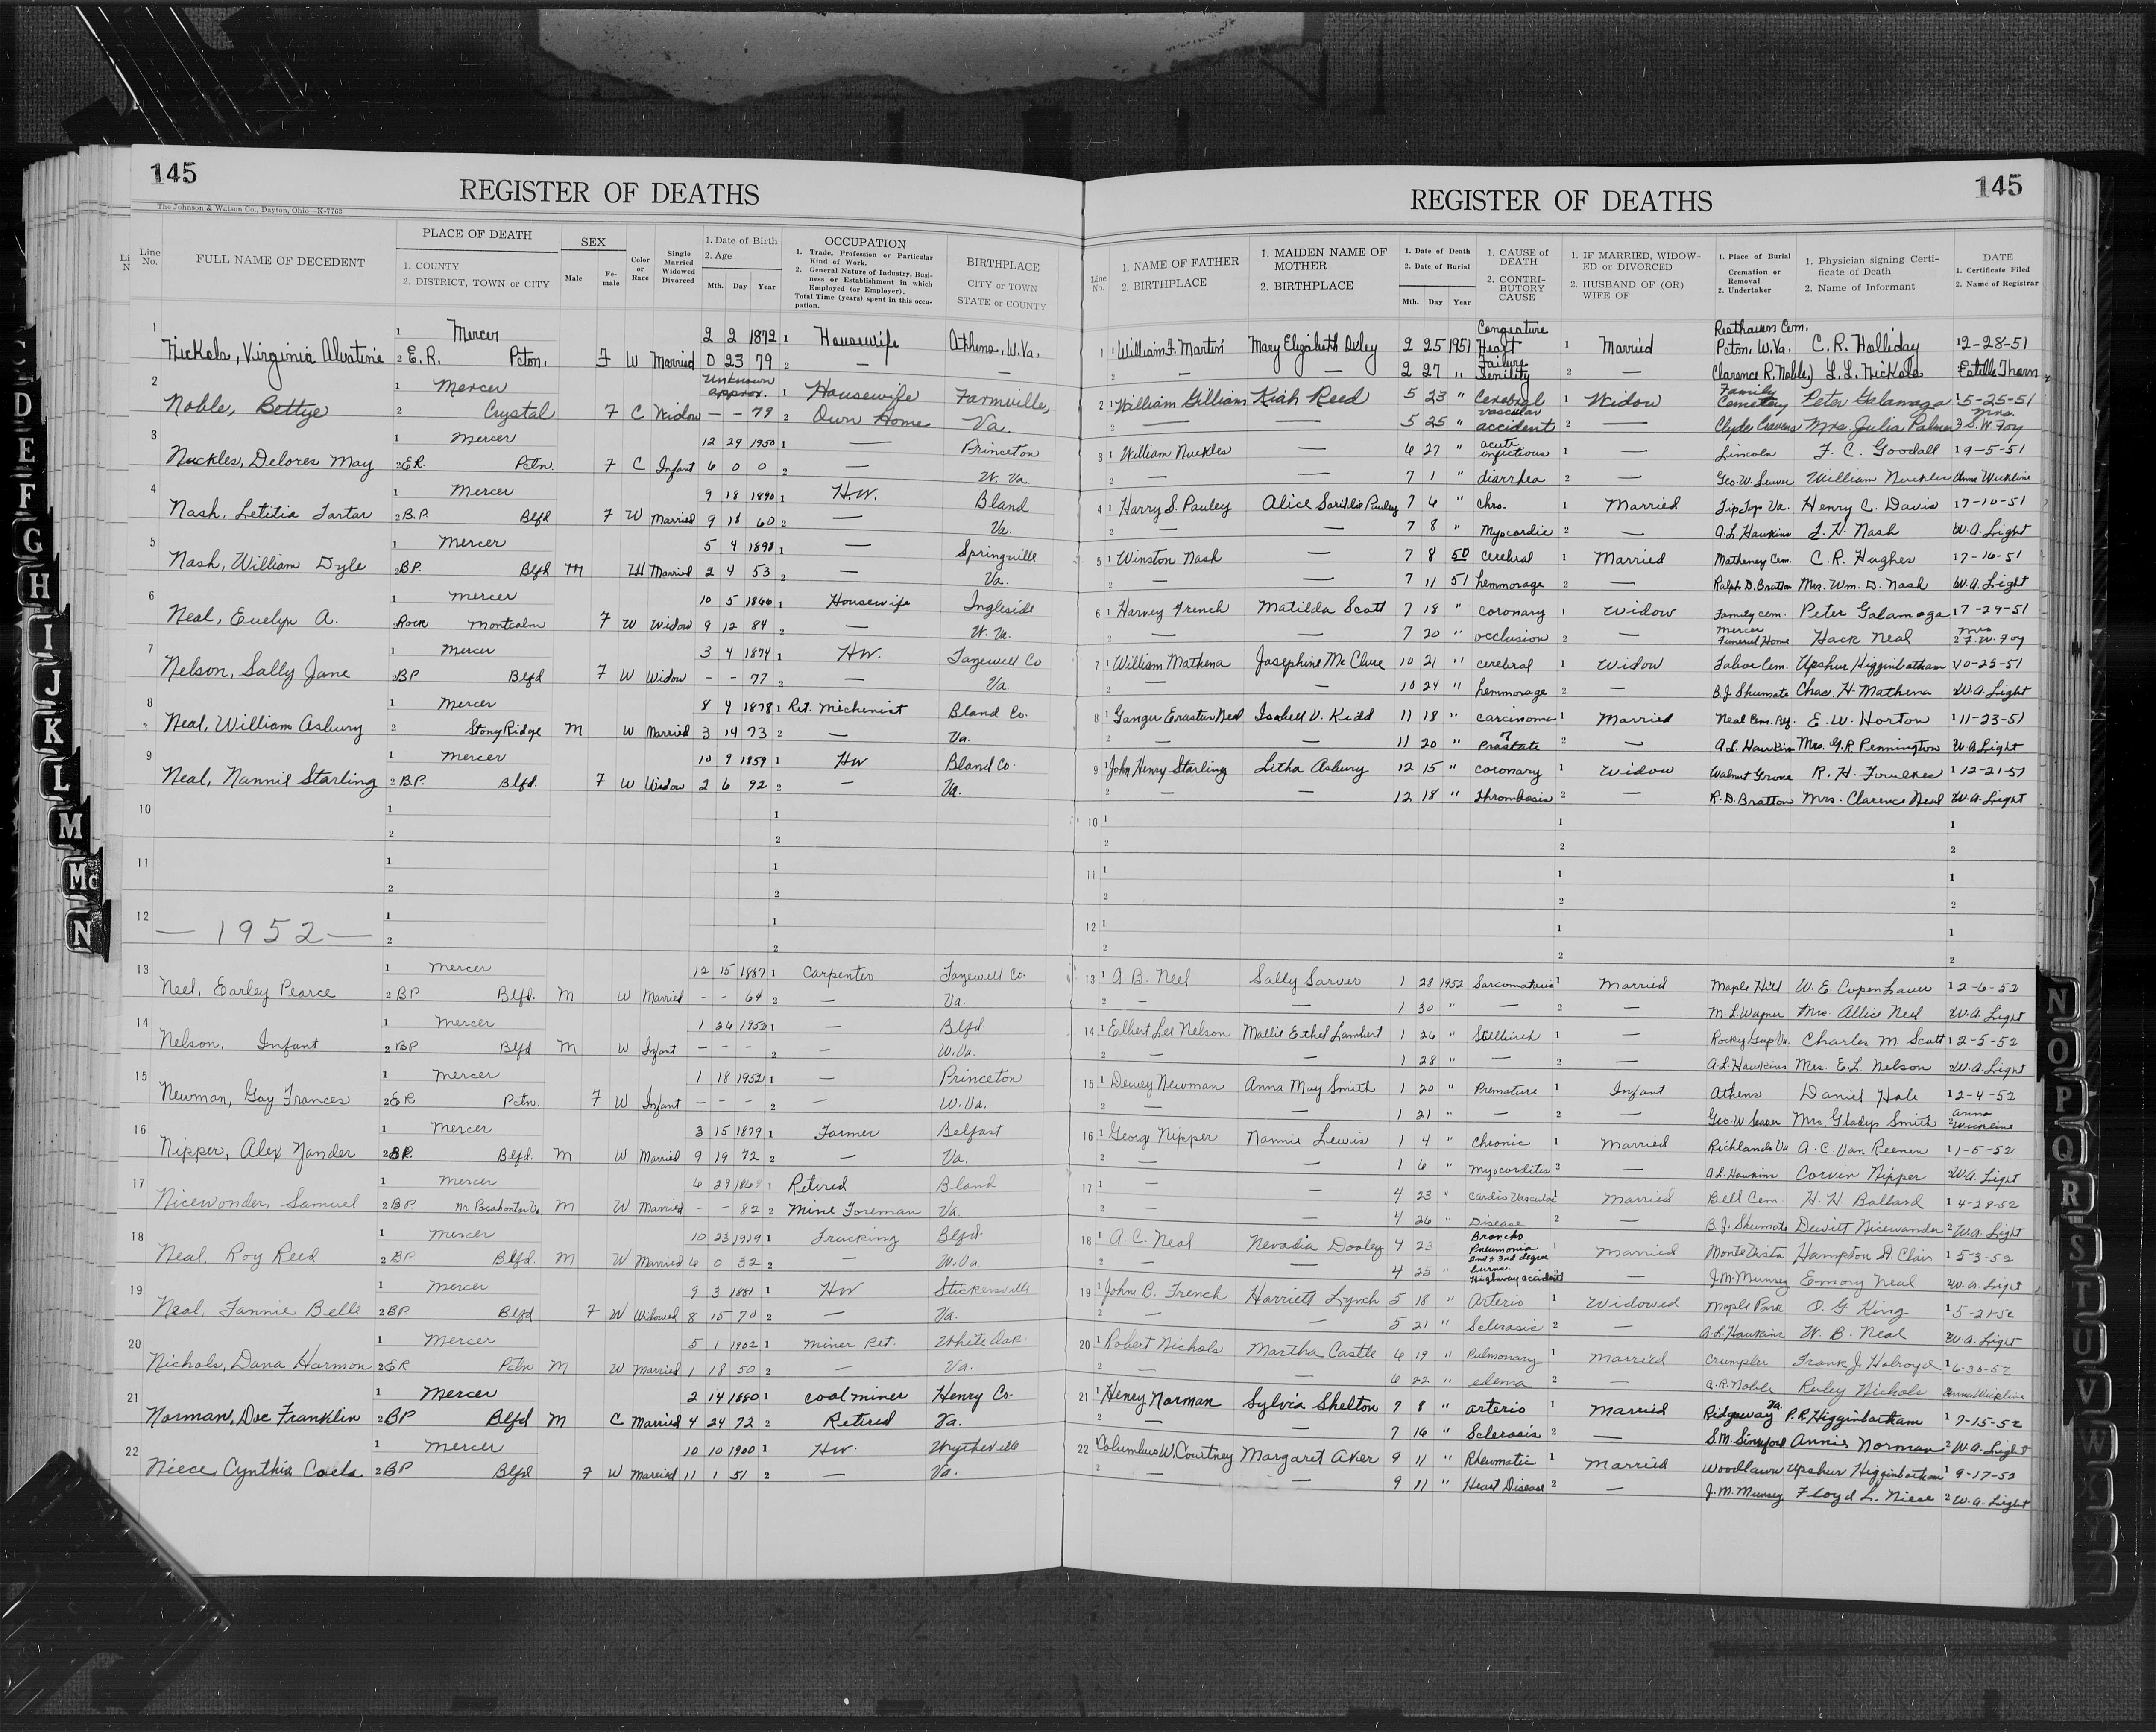 145
REGISTER OF DEATHS
The Johnson & Watson Co., Dayton, Ohio—K-7763
Line No.
FULL NAME OF DECEDENT
PLACE OF DEATH
1. COUNTY
2. DISTRICT, TOWN or CITY
SEX
Male
Female
Color or Race
Single Married Widowed Divorced
1. Date of Birth
2. Age
Mth. Day Year
OCCUPATION
1. Trade, Profession or Particular Kind of Work.
2. General Nature of Industry, Business or Establishment in which Employed (or Employer).
Total Time (years) spent in this occupation.
BIRTHPLACE
CITY or TOWN
STATE or COUNTY
1 Nickols, Virginia Alvatine 1 Mercer 2 2 1872 1 Housewife Athens, W.Va.
2 E.R. Pcton. F W Married 0 23 79 2 —
2 Noble, Bettye 1 Mercer Unknown approx. 1 Housewife Farmville,
2 Crystal F C Widow – – 79 2 Own Home Va.
3 Nuckles, Delores May 1 Mercer 12 29 1950 1 — Princeton
2 E.R. Pctn. F C Infant 6 0 0 2 — W. Va.
4 Nash, Letitia Tartar 1 Mercer 9 18 1890 1 H.W. Bland
2 B.P. Blfd F W Married 9 18 60 2 — Va.
5 Nash, William Dyle 1 Mercer 5 4 1898 1 — Springville
2 BP. Blfd M W Married 2 4 53 2 — Va.
6 Neal, Evelyn A. 1 Mercer 10 5 1866 1 Housewife Ingleside
2 Rock Montcalm F W Widow 9 12 84 2 — W. Va.
7 Nelson, Sally Jane 1 Mercer 3 4 1874 1 H.W. Tazewell Co
2 BP Blfd F W Widow – – 77 2 — Va.
8 Neal, William Asbury 1 Mercer 8 4 1878 1 Ret. Mechenist Bland Co.
2 Stony Ridge M W Married 3 14 73 2 — Va.
9 Neal, Nannie Starling 1 Mercer 10 9 1859 1 HW Bland Co.
2 B.P. Blfd. F W Widow 2 6 92 2 — Va.
10 1 1
2 2
11 1 1
2 2
12 — 1952 — 1 1
2 2
13 Neel, Earley Pearce 1 Mercer 12 15 1887 1 Carpenter Tazewell Co.
2 BP Blfd. M W Married – – 64 2 — Va.
14 Nelson, Infant 1 Mercer 1 26 1952 1 — Blfd.
2 BP Blfd M W Infant – – – 2 — W.Va.
15 Newman, Gay Frances 1 Mercer 1 18 1952 1 — Princeton
2 ER Pctn. F W Infant – – – 2 — W.Va.
16 Nipper, Alex Zander 1 Mercer 3 15 1879 1 Farmer Belfast
2 BP. Blfd. M W Married 9 19 72 2 — Va.
17 Nicewonder, Samuel 1 Mercer 6 29 1 Retired Bland
2 BP Nr Pocahontas Va M W Married – – 82 2 Mine Foreman Va.
18 Neal, Roy Reed 1 Mercer 10 23 1919 1 Trucking Blfd.
2 BP Blfd. M W Married 6 0 32 2 — W.Va
19 Neal, Fannie Belle 1 Mercer 9 3 1881 1 HW Stickersville
2 BP Blfd F W Widowed 8 15 70 2 — Va.
20 Nichols, Dana Harmon 1 Mercer 5 1 1902 1 Miner Ret. White Oak
2 ER Pctn M W Married 1 18 50 2 — Va.
21 Norman, Doc Franklin 1 Mercer 2 14 1880 1 coal miner Henry Co.
2 BP Blfd M C Married 4 24 72 2 Retired Va.
22 Niece, Cynthia 1 Mercer 10 10 1900 1 H.W. Wytheville
2 BP Blfd F W Married 11 1 51 2 — Va.
D
E
F
G
H
I
J
K
L
M
Mc
N
REGISTER OF DEATHS
145
Line No.
1. NAME OF FATHER
2. BIRTHPLACE
1. MAIDEN NAME OF MOTHER
2. BIRTHPLACE
1. Date of Death
2. Date of Burial
Mth. Day Year
1. CAUSE of DEATH
2. CONTRIBUTORY CAUSE
1. IF MARRIED, WIDOWED or DIVORCED
2. HUSBAND OF (OR) WIFE OF
1. Place of Burial Cremation or Removal
2. Undertaker
1. Physician signing Certificate of Death
2. Name of Informant
DATE
1. Certificate Filed
2. Name of Registrar
1 1 William F. Martin Mary Elizabeth 2 25 1951 Congesture Heart 1 Married Resthaven Cem. Pcton, W.Va. C. R. Holliday 1 2-28-51
2 — — 2 27 " Failure Senility 2 — Clarence R. Noble L. L. Nickols Estille Thorn
2 1 William Gilliam Kiah Reed 5 23 " Cerebral 1 Widow Family Cemetery Peter Galamaga 1 5-25-51
2 — — 5 25 " vascular accident 2 — Clyde Cravens Mrs. Julia Palmer Mrs. S.W. Foy
3 1 William Nuckles 6 27 " acute infectious 1 — Lincoln F. C. Goodall 1 9-5-51
2 — — 7 1 " diarrhea 2 — Geo. W. Seaver William Nuckles Anna Wickline
4 1 Harry S. Pauley Alice Pauley 7 6 " Chro. 1 Married Tip Top Va. Henry C. Davis 1 7-10-51
2 — — 7 8 " Myocardic 2 — A.L. Hawkins Nash W.A. Light
5 1 Winston Nash — 7 8 50 Cerebral 1 Married Matheney Cem. C.R. Hughes 1 7-16-51
2 — — 7 11 51 hemmorage 2 — Ralph D. Bratton Mrs. Wm. D. Nash W.A. Light
6 1 Harvey French Matilda Scott 7 18 " coronary 1 Widow Family cem. Peter Galamaga 1 7-29-51
2 — — 7 20 " occlusion 2 — Mercer Funeral Home Hack Neal Mrs F.W. Foy
7 1 William Mathena Josephine McClure 10 21 " cerebral 1 Widow Tabor Cem. Upshur Higginbotham 10-25-51
2 — — 10 24 " hemmorage 2 — B.J. Shumate Chas. H. Mathena W.A. Light
8 1 Erastus Neal Isabell V. Kidd 11 18 " carcinoma 1 Married Neal Cem. E. W. Horton 1 11-23-51
2 — — 11 20 " of Prastate 2 — A.L. Hawkins Mrs. G.R. Pennington W.A. Light
9 1 John Henry Starling Litha Asbury 12 15 " coronary 1 Widow Walnut Grove R. H. Foulkes 1 12-21-51
2 — — 12 18 " thrombosis 2 — R.D. Bratton Mrs. Clarence Neal W.A. Light
10 1 1 1
2 2 2
11 1 1 1
2 2 2
12 1 1 1
2 2 2
13 1 A. B. Neel Sally Sarver 1 28 1952 1 Married Maple Hill W. E. Copenhaver 1 2-6-52
2 — — 1 30 " — 2 — M.L. Wagner Mrs. Allice Neel 2 W.A. Light
14 1 Elbert Lee Nelson Mallie Ethel Lambert 1 26 " Stillbirth 1 — Rocky Gap Va. Charles M. Scott 1 2-5-52
2 — — 1 28 " — 2 — A.L. Hawkins Mrs. E.L. Nelson 2 W.A. Light
15 1 Dewey Newman Anna May Smith 1 20 " Premature 1 Infant Athens Daniel Hale 1 2-4-52
2 — — 1 21 " — 2 — Geo W Seaver Mrs. Gladys Smith Anna 2 Wickline
16 1 Georg Nipper Nannie Lewis 1 4 " Chronic 1 Married Richlands Va A. C. Van Reenen 1 1-5-52
2 — — 1 6 " Myocarditis 2 — A.L. Hawkins Corvin Nipper 2 W.A. Light
17 1 — — 4 23 " Cardio Vascular 1 Married Bell Cem. H. H Ballard 1 4-28-52
2 — — 4 26 " Disease 2 — B.J. Shumate Dewitt Nicewander 2 W.A. Light
18 1 A.C. Neal Nevadia Dooley 4 23 Broncho Pneumonia 1 Married Monte Vista Hampton St. Clair 1 5-3-52
2 — — 4 25 " 2nd & 3rd degree burns Highway accident 2 — J.M. Munsey Emory Neal 2 W.A. Light
19 1 John B. French Harriett Lynch 5 18 " Arterio 1 Widowed Maple Park O. G. King 1 5-21-52
2 — — 5 21 " Sclerosis 2 — A.L. Hawkins W. B. Neal W.A. Light
20 1 Robert Nichols Martha Castle 6 19 " Pulmonary 1 Married Crumpler Frank J. Holroyd 1 6-30-52
2 — — 6 22 " edema 2 — Noble Ruley Nichols Anna Wickline
21 1 Henry Norman Sylvia Shelton 7 8 " arterio 1 Married Ridgeway Va. P. R. Higginbotham 1 7-15-52
2 — — 7 16 " Sclerosis 2 — Annie Norman 2 W.A. Light
22 1 Columbus W. Courtney Margaret Aker 9 11 " Rheumatic 1 Married Woodlawn Upshur Higginbotham 1 9-17-52
2 — — 9 11 " Heart Disease 2 — J.M. Munsey Floyd L. Niece 2 W.A. Light
N
O
P
Q
R
S
T
U
V
W
X
Y
Z